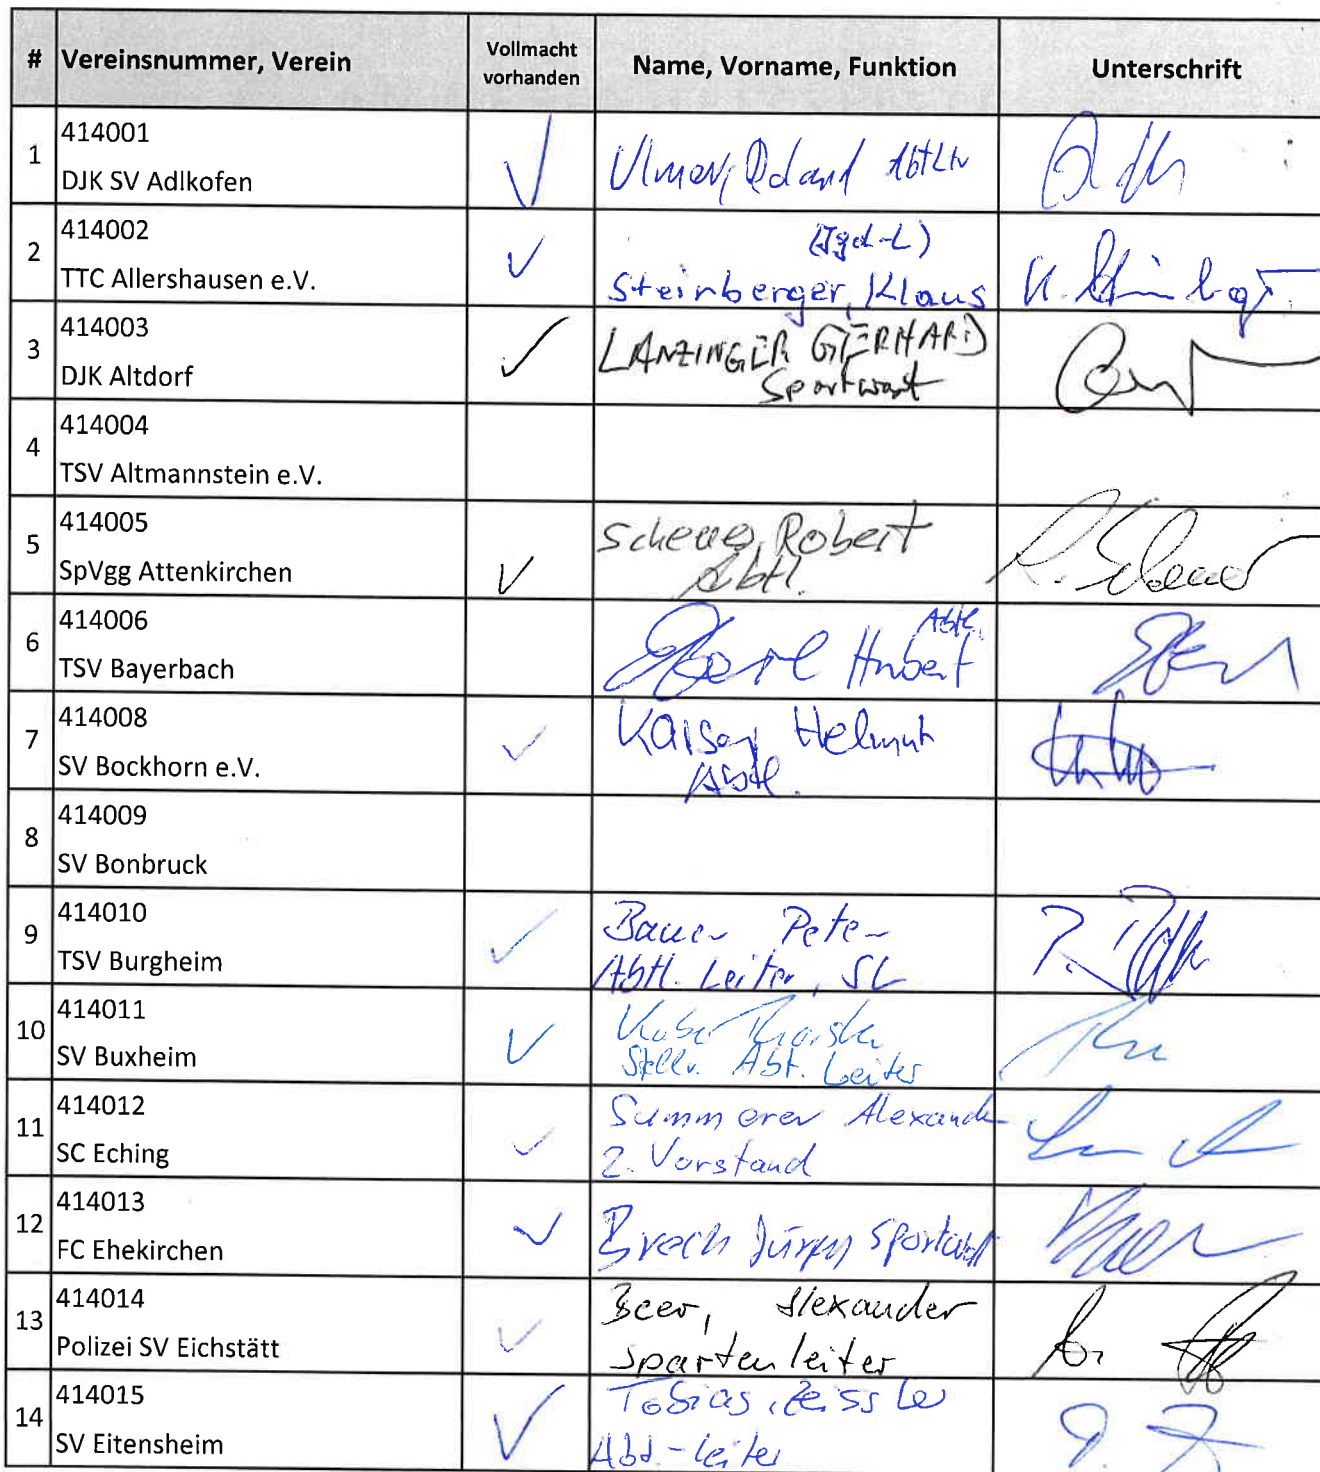 # Vereinsnummer, Verein Vollmacht vorhanden Name, Vorname, Funktion Unterschrift
1 414001
DJK SV Adlkofen
✓ Ulmer, Roland AbtLtr
2 414002
TTC Allershausen e.V.
✓ (Jgd-L)
Steinberger, Klaus
K.
3 414003
DJK Altdorf
✓ LANZINGER GERHARD
Sportwart
4 414004
TSV Altmannstein e.V.
5 414005
SpVgg Attenkirchen
✓ Scheuer, Robert
Abtl.
R. Scheuer
6 414006
TSV Bayerbach
Abtl.
Eberl Hubert
7 414008
SV Bockhorn e.V.
✓ Kaiser, Helmut
Abtl.
8 414009
SV Bonbruck
9 414010
TSV Burgheim
✓ Bauer Peter
Abtl. Leiter, SL
P.
10 414011
SV Buxheim
✓ Thorsten
Stellv. Abt. Leiter
11 414012
SC Eching
✓ Summerer Alexander
2. Vorstand
12 414013
FC Ehekirchen
✓ Brech Jürgen Sportwart
13 414014
Polizei SV Eichstätt
✓ Beer, Alexander
Spartenleiter
14 414015
SV Eitensheim
✓ Tobias, Zeissler
Abt-Leiter